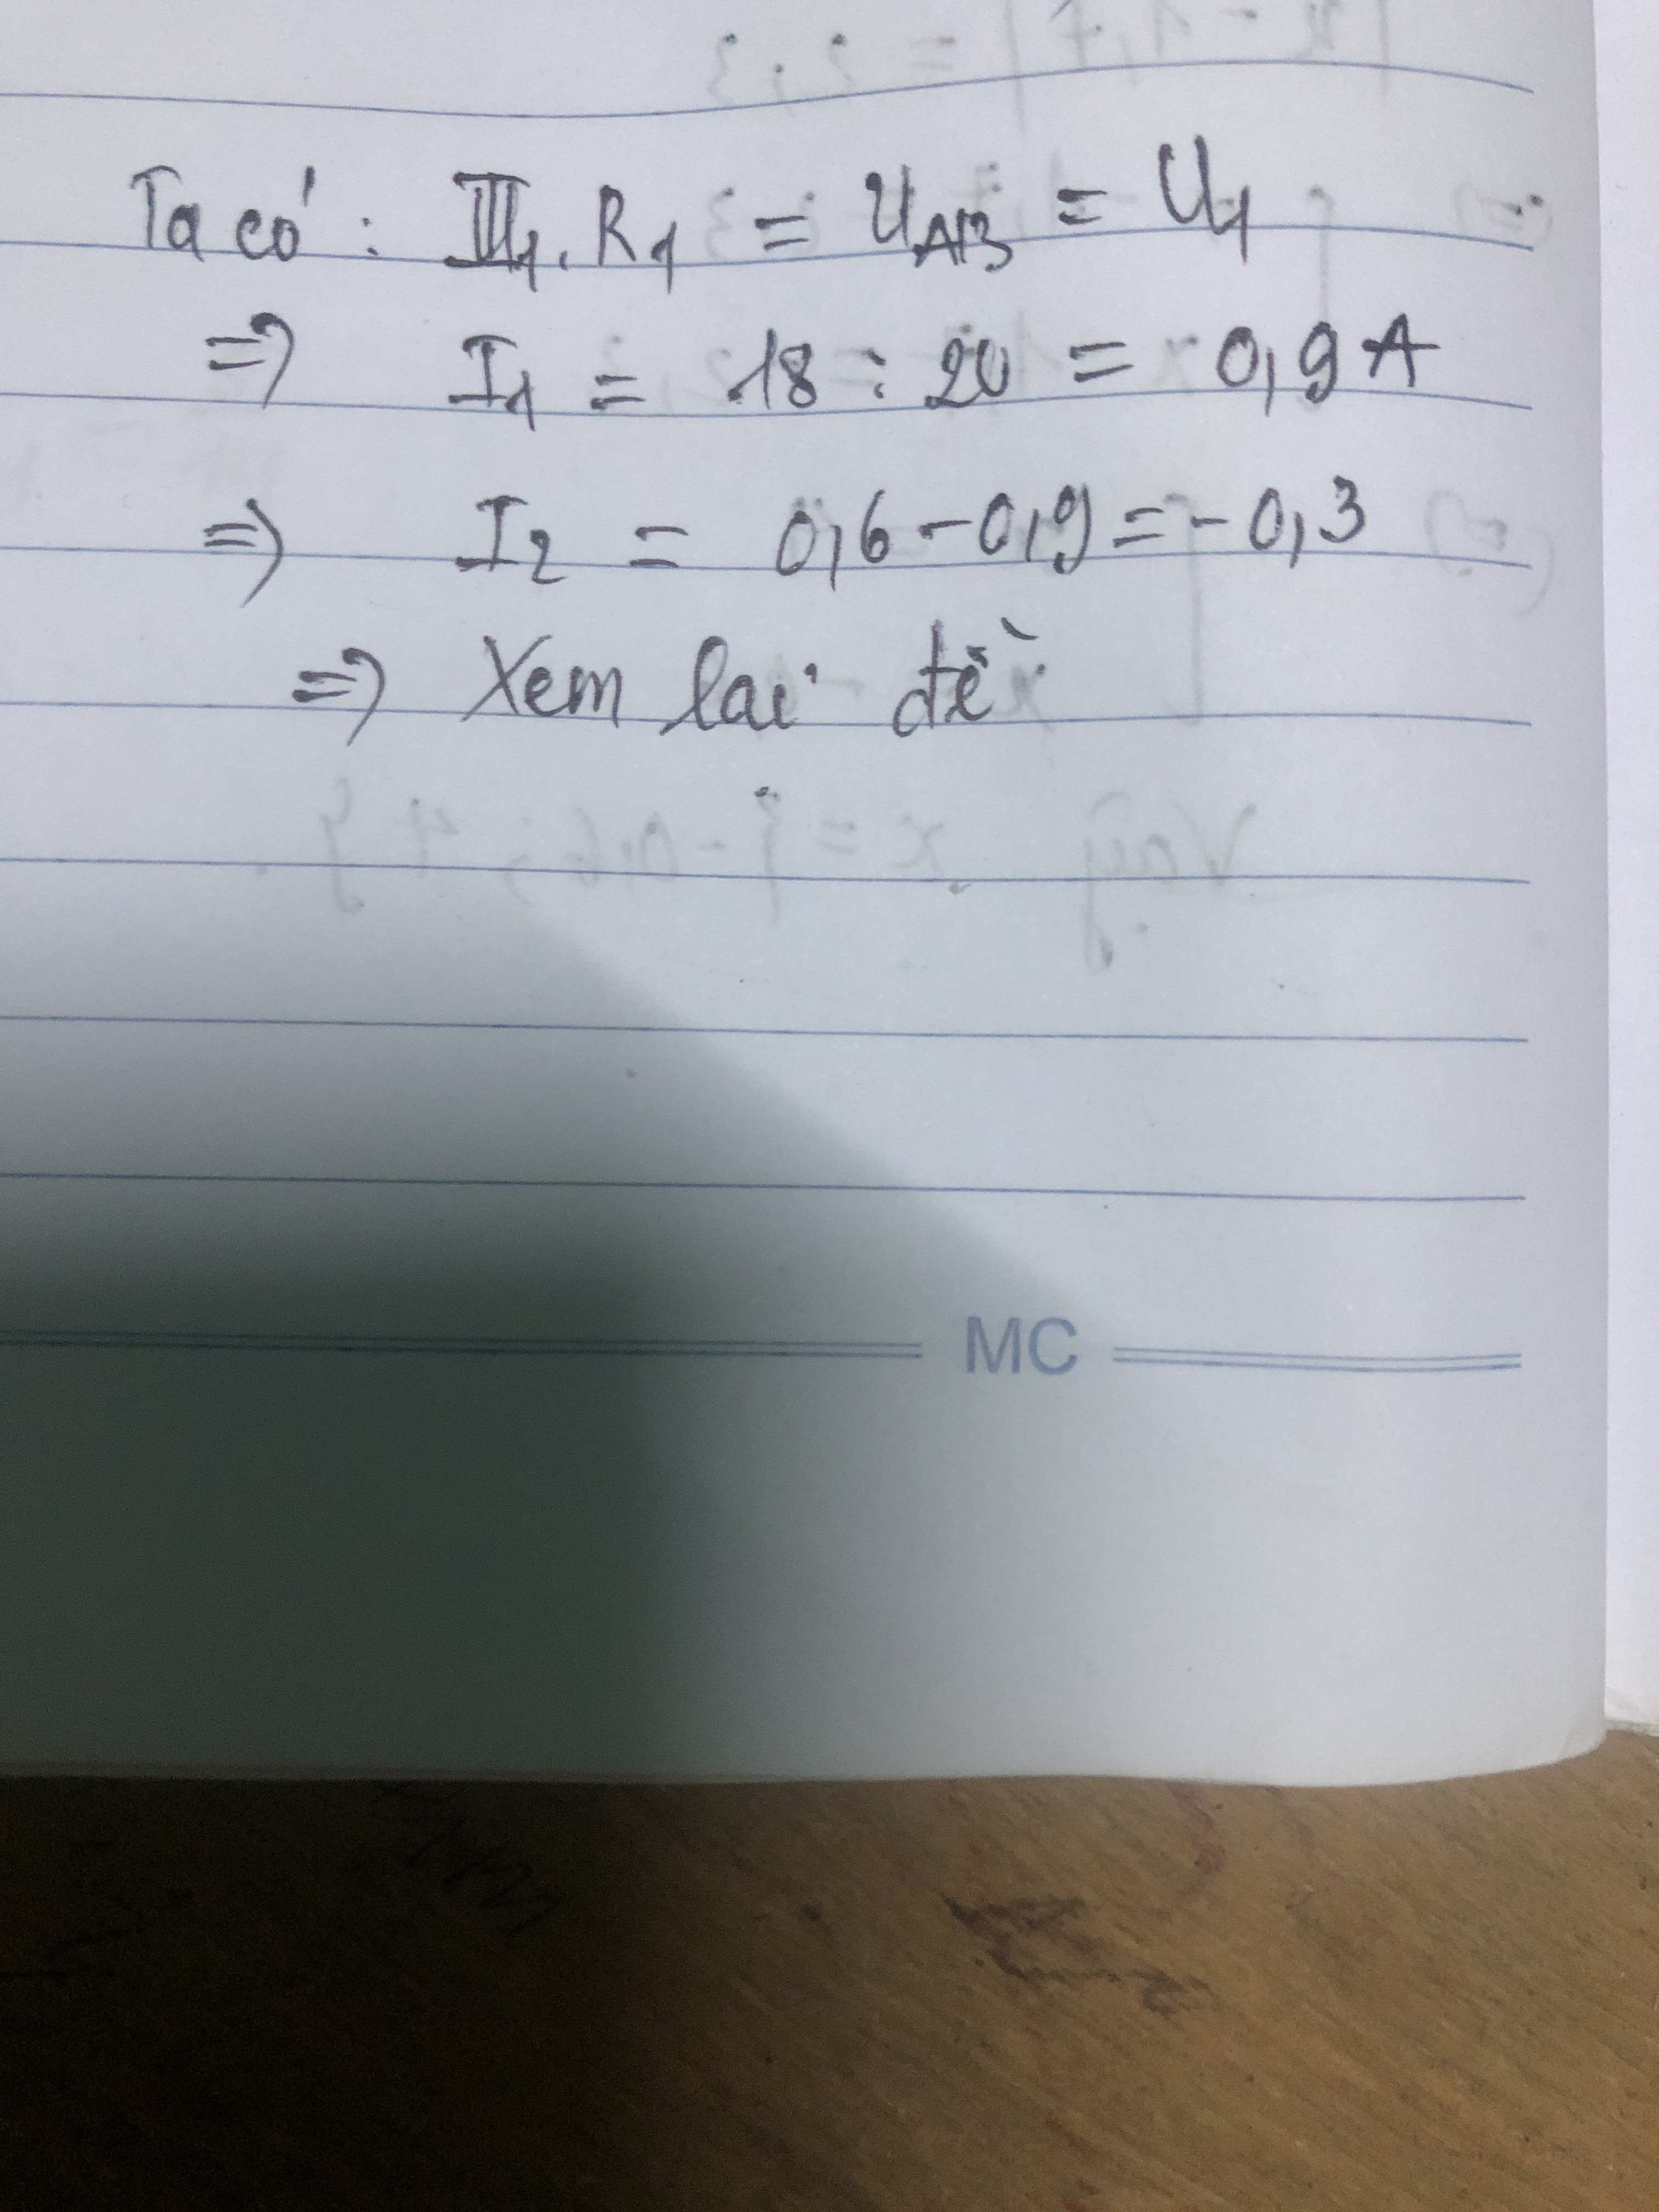 Ta có : I1 . R1 = UAB = U1
=> I1 = 18 : 20 = 0,9 A
=> I2 = 0,6 - 0,9 = - 0,3
=> Xem lại đề
MC